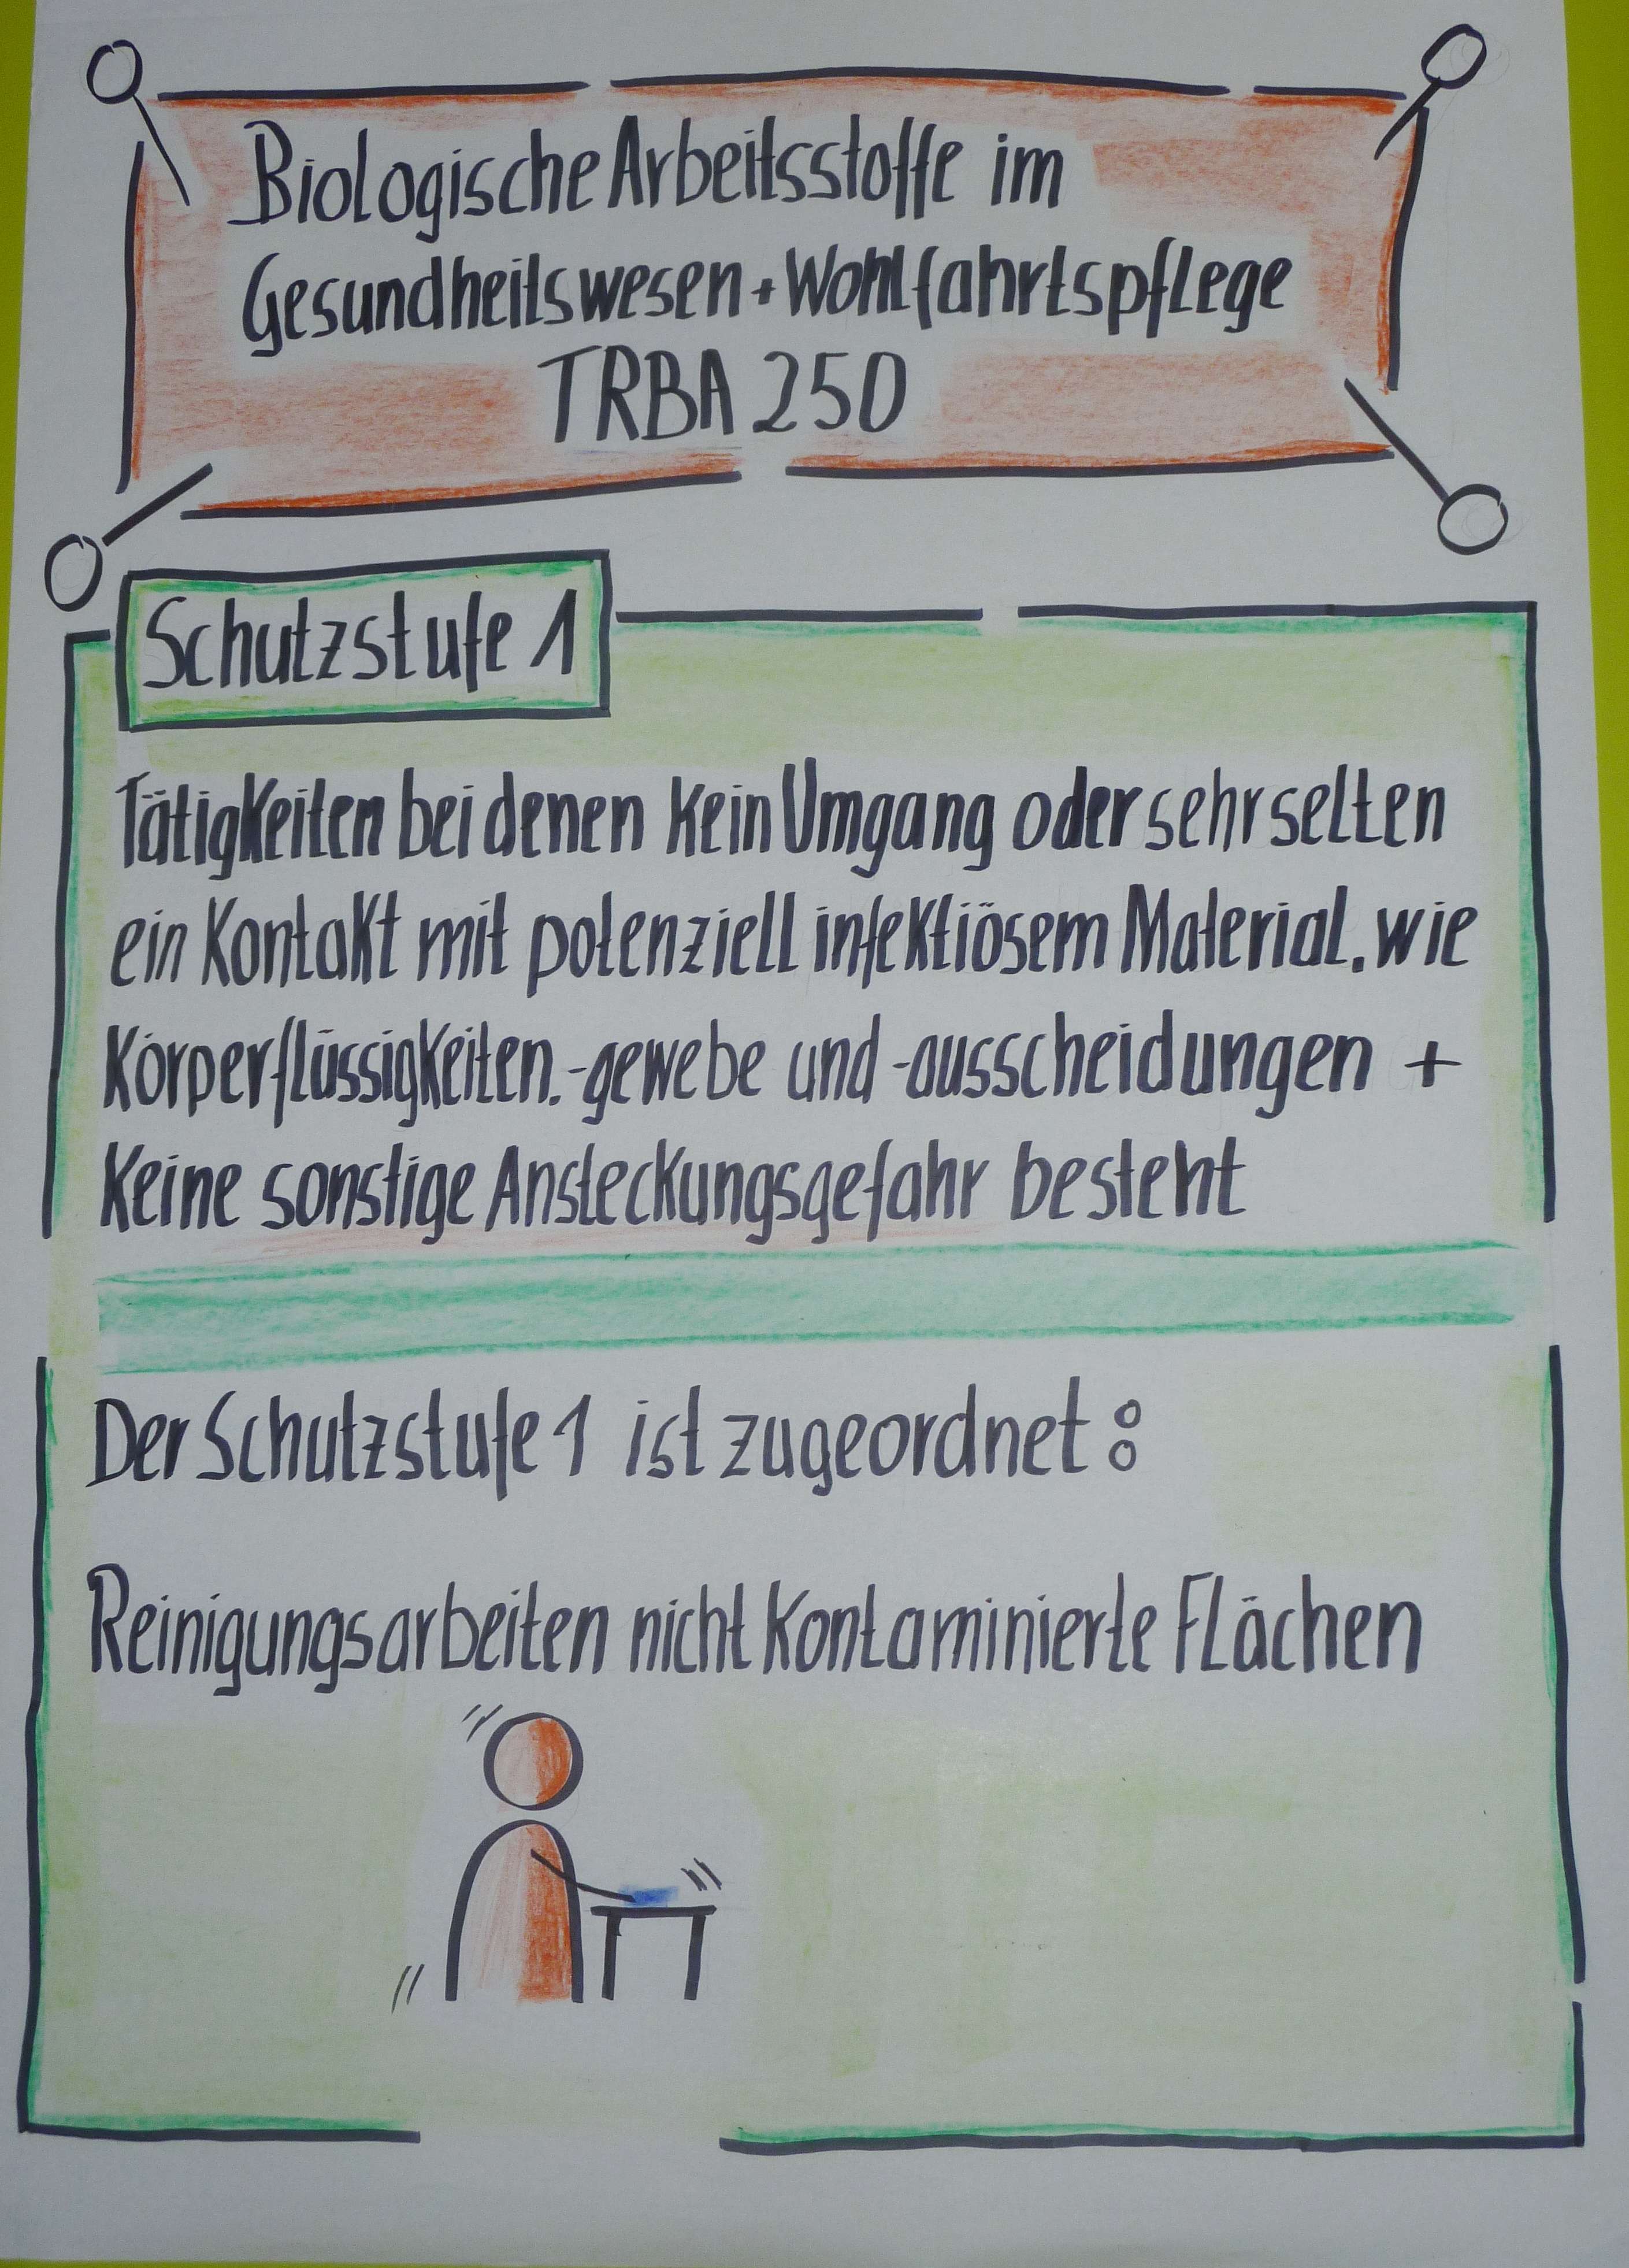 Biologische Arbeitsstoffe im
Gesundheitswesen + Wohlfahrtspflege
TRBA 250
Schutzstufe 1
Tätigkeiten bei denen kein Umgang oder sehr selten
ein Kontakt mit potenziell infektiösem Material, wie
Körperflüssigkeiten, -gewebe und -ausscheidungen +
keine sonstige Ansteckungsgefahr besteht
Der Schutzstufe 1 ist zugeordnet:
Reinigungsarbeiten nicht kontaminierte Flächen